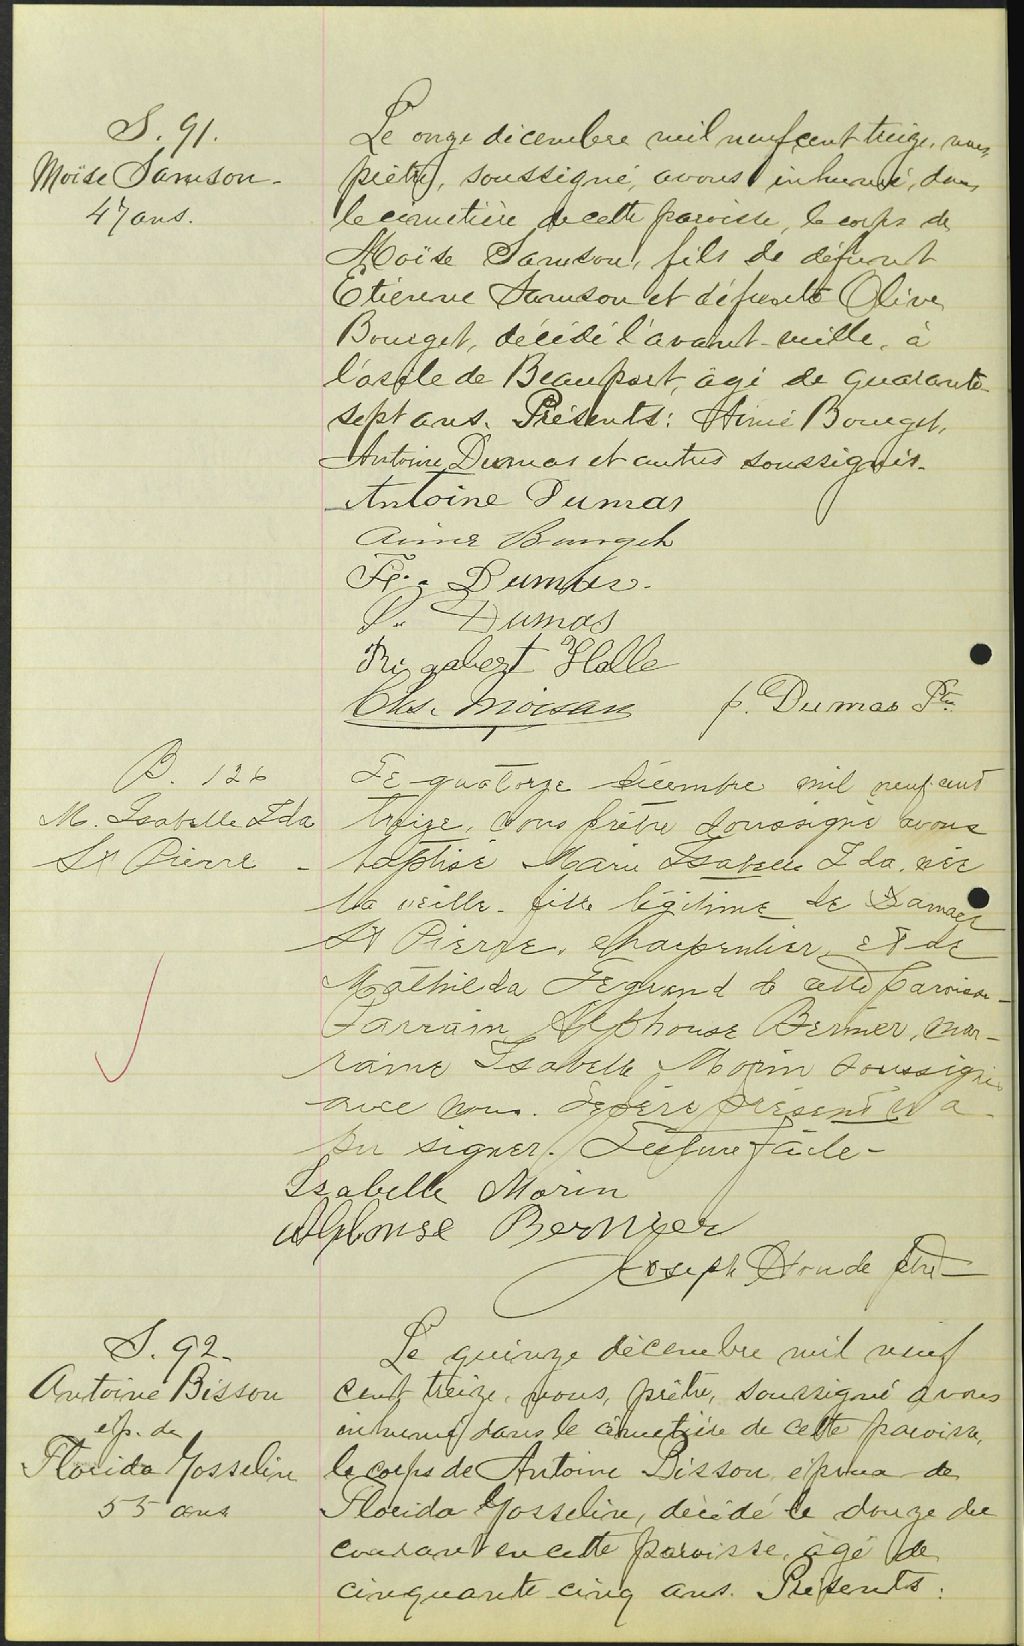 S. 91.
Moïse Samson -
47 ans.
Le onze décembre mil neuf cent treize, nous,
prêtre, soussigné, avons inhumé, dans
le cimetière de cette paroisse, le corps de
Moïse Samson, fils de défunt
Etienne Samson et défunte Olive
Bourget, décédé l'avant-veille, à
l'asile de Beauport, âgé de quarante-
sept ans. Présents: Aimé Bourget,
Antoine Dumas et autres soussignés.
Antoine Dumas
Aimé Bourget
Dumas.
Dumas
Rigobert Hallé
Chs. Moisan
p. C. Dumas Ptre.
B. 126
M. Isabelle Ida
St Pierre -
Le quatorze décembre mil neuf cent
treize, nous prêtre soussigné avons
baptisé Marie Isabelle Ida, née
la veille, fille légitime de
St Pierre, charpentier, et de
Mathilda Legrand de cette paroisse -
Parrain Alphonse Bernier, mar-
raine Isabelle Morin soussignés
avec nous. Le père présent n'a
pu signer. Lecture faite -
Isabelle Morin
Alphonse Bernier
Joseph Houde ptre -
S. 92.
Antoine Bisson
ép. de
Florida Gosselin
55 ans
Le quinze décembre mil neuf
cent treize, nous, prêtre, soussigné avons
inhumé dans le cimetière de cette paroisse,
le corps de Antoine Bisson, époux de
Florida Gosselin, décédé le douze du
courant en cette paroisse, âgé de
cinquante-cinq ans. Présents: